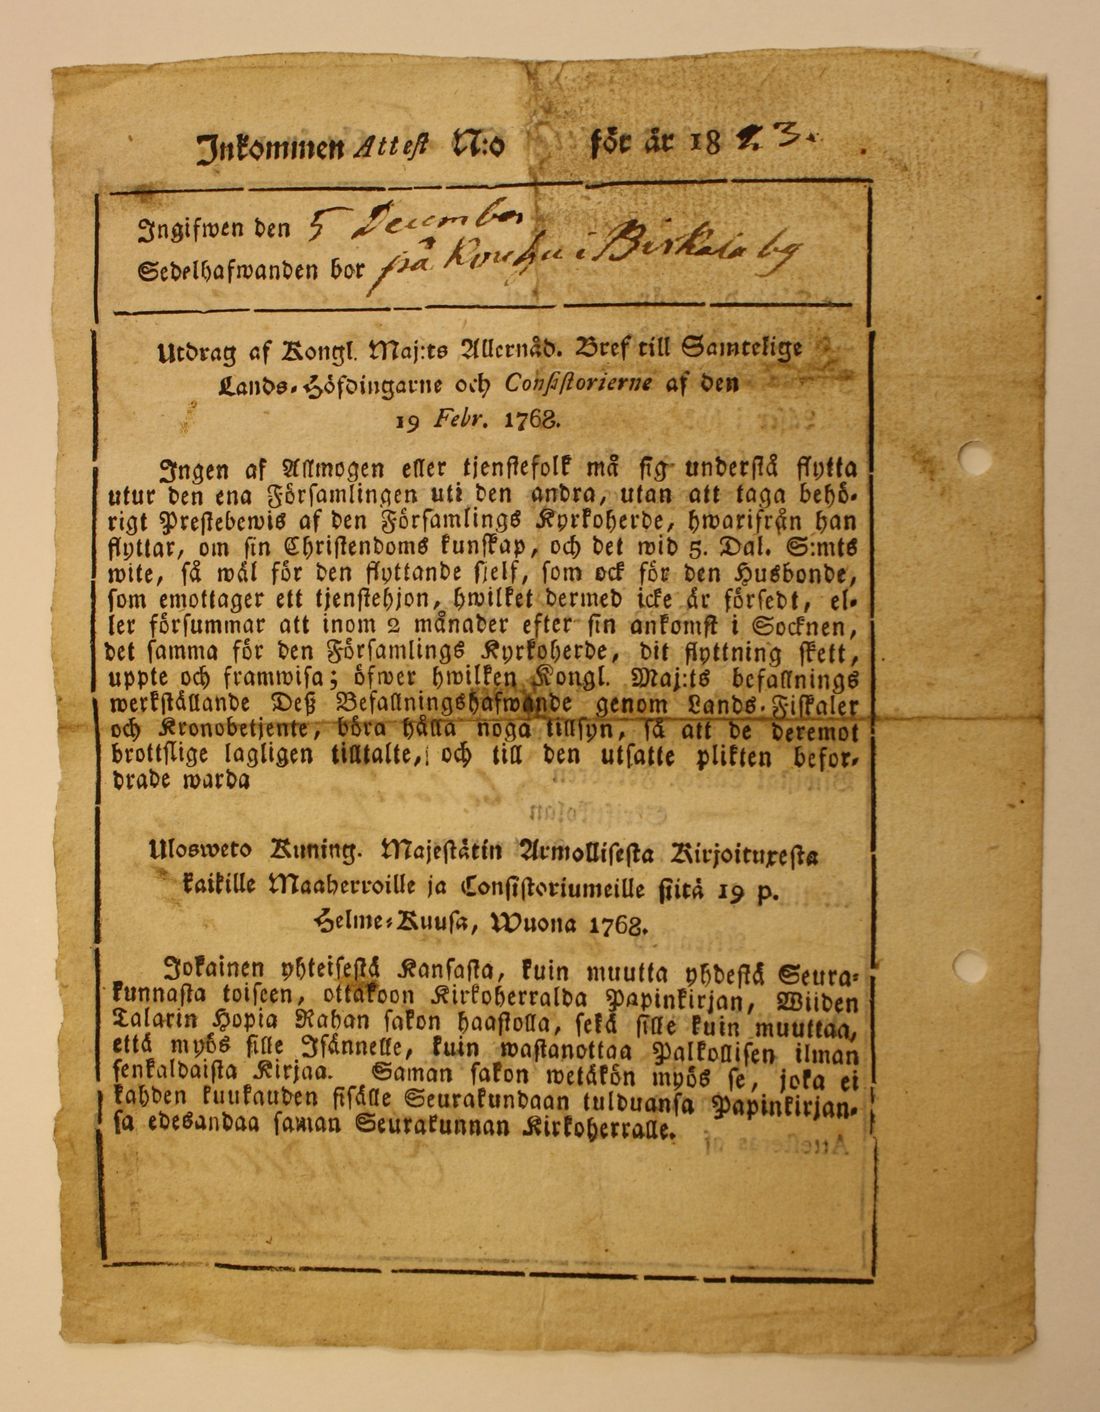 Inkommen Attest N:o för år 1823.
Ingifwen den 5 December
Sedelhafwanden bor på i Birkala by
Utdrag af Kongl. Maj:ts Allernåd. Bref till Samtelige
Lands-Höfdingarne och Consistorierne af den
19 Febr. 1768.
Ingen af Allmogen eller tjenstefolk må sig understå flytta
utur den ena Församlingen uti den andra, utan att taga behö-
rigt Prestebewis af den Församlings Kyrkoherde, hwarifrån han
flyttar, om sin Christendoms kunskap, och det wid 5. Dal. S:mts
wite, så wäl för den flyttande sjelf, som ock för den Husbonde,
som emottager ett tjenstehjon, hwilket dermed icke är försedt, el-
ler försummar att inom 2 månader efter sin ankomst i Socknen,
det samma för den Församlings Kyrkoherde, dit flyttning skett,
uppte och framwisa; öfwer hwilken Kongl. Maj:ts befallnings
werkställande Deß Befallningshafwande genom Lands-Fiskaler
och Kronobetjente, böra hålla noga tillsyn, så att de deremot
brottslige lagligen tilltalte, och till den utsatte plikten befor-
drade warda
Ulosweto Kuning. Majestätin Armollisesta Kirjoituxesta
kaikille Maaherroille ja Consistoriumeille siitä 19 p.
Helme-Kuusa, Wuona 1768.
Jokainen yhteisestä Kansasta, kuin muutta yhdestä Seura-
kunnasta toiseen, ottakoon Kirkoherralda Papinkirjan, Wiiden
Talarin Hopia Rahan sakon haastolla, sekä sille kuin muuttaa,
että myös sille Isännelle, kuin wastanottaa Palkollisen ilman
senkaldaista Kirjaa. Saman sakon wetäkön myös se, joka ei
kahden kuukauden sisälle Seurakundaan tulduansa Papinkirjan-
sa edesandaa saman Seurakunnan Kirkoherralle.